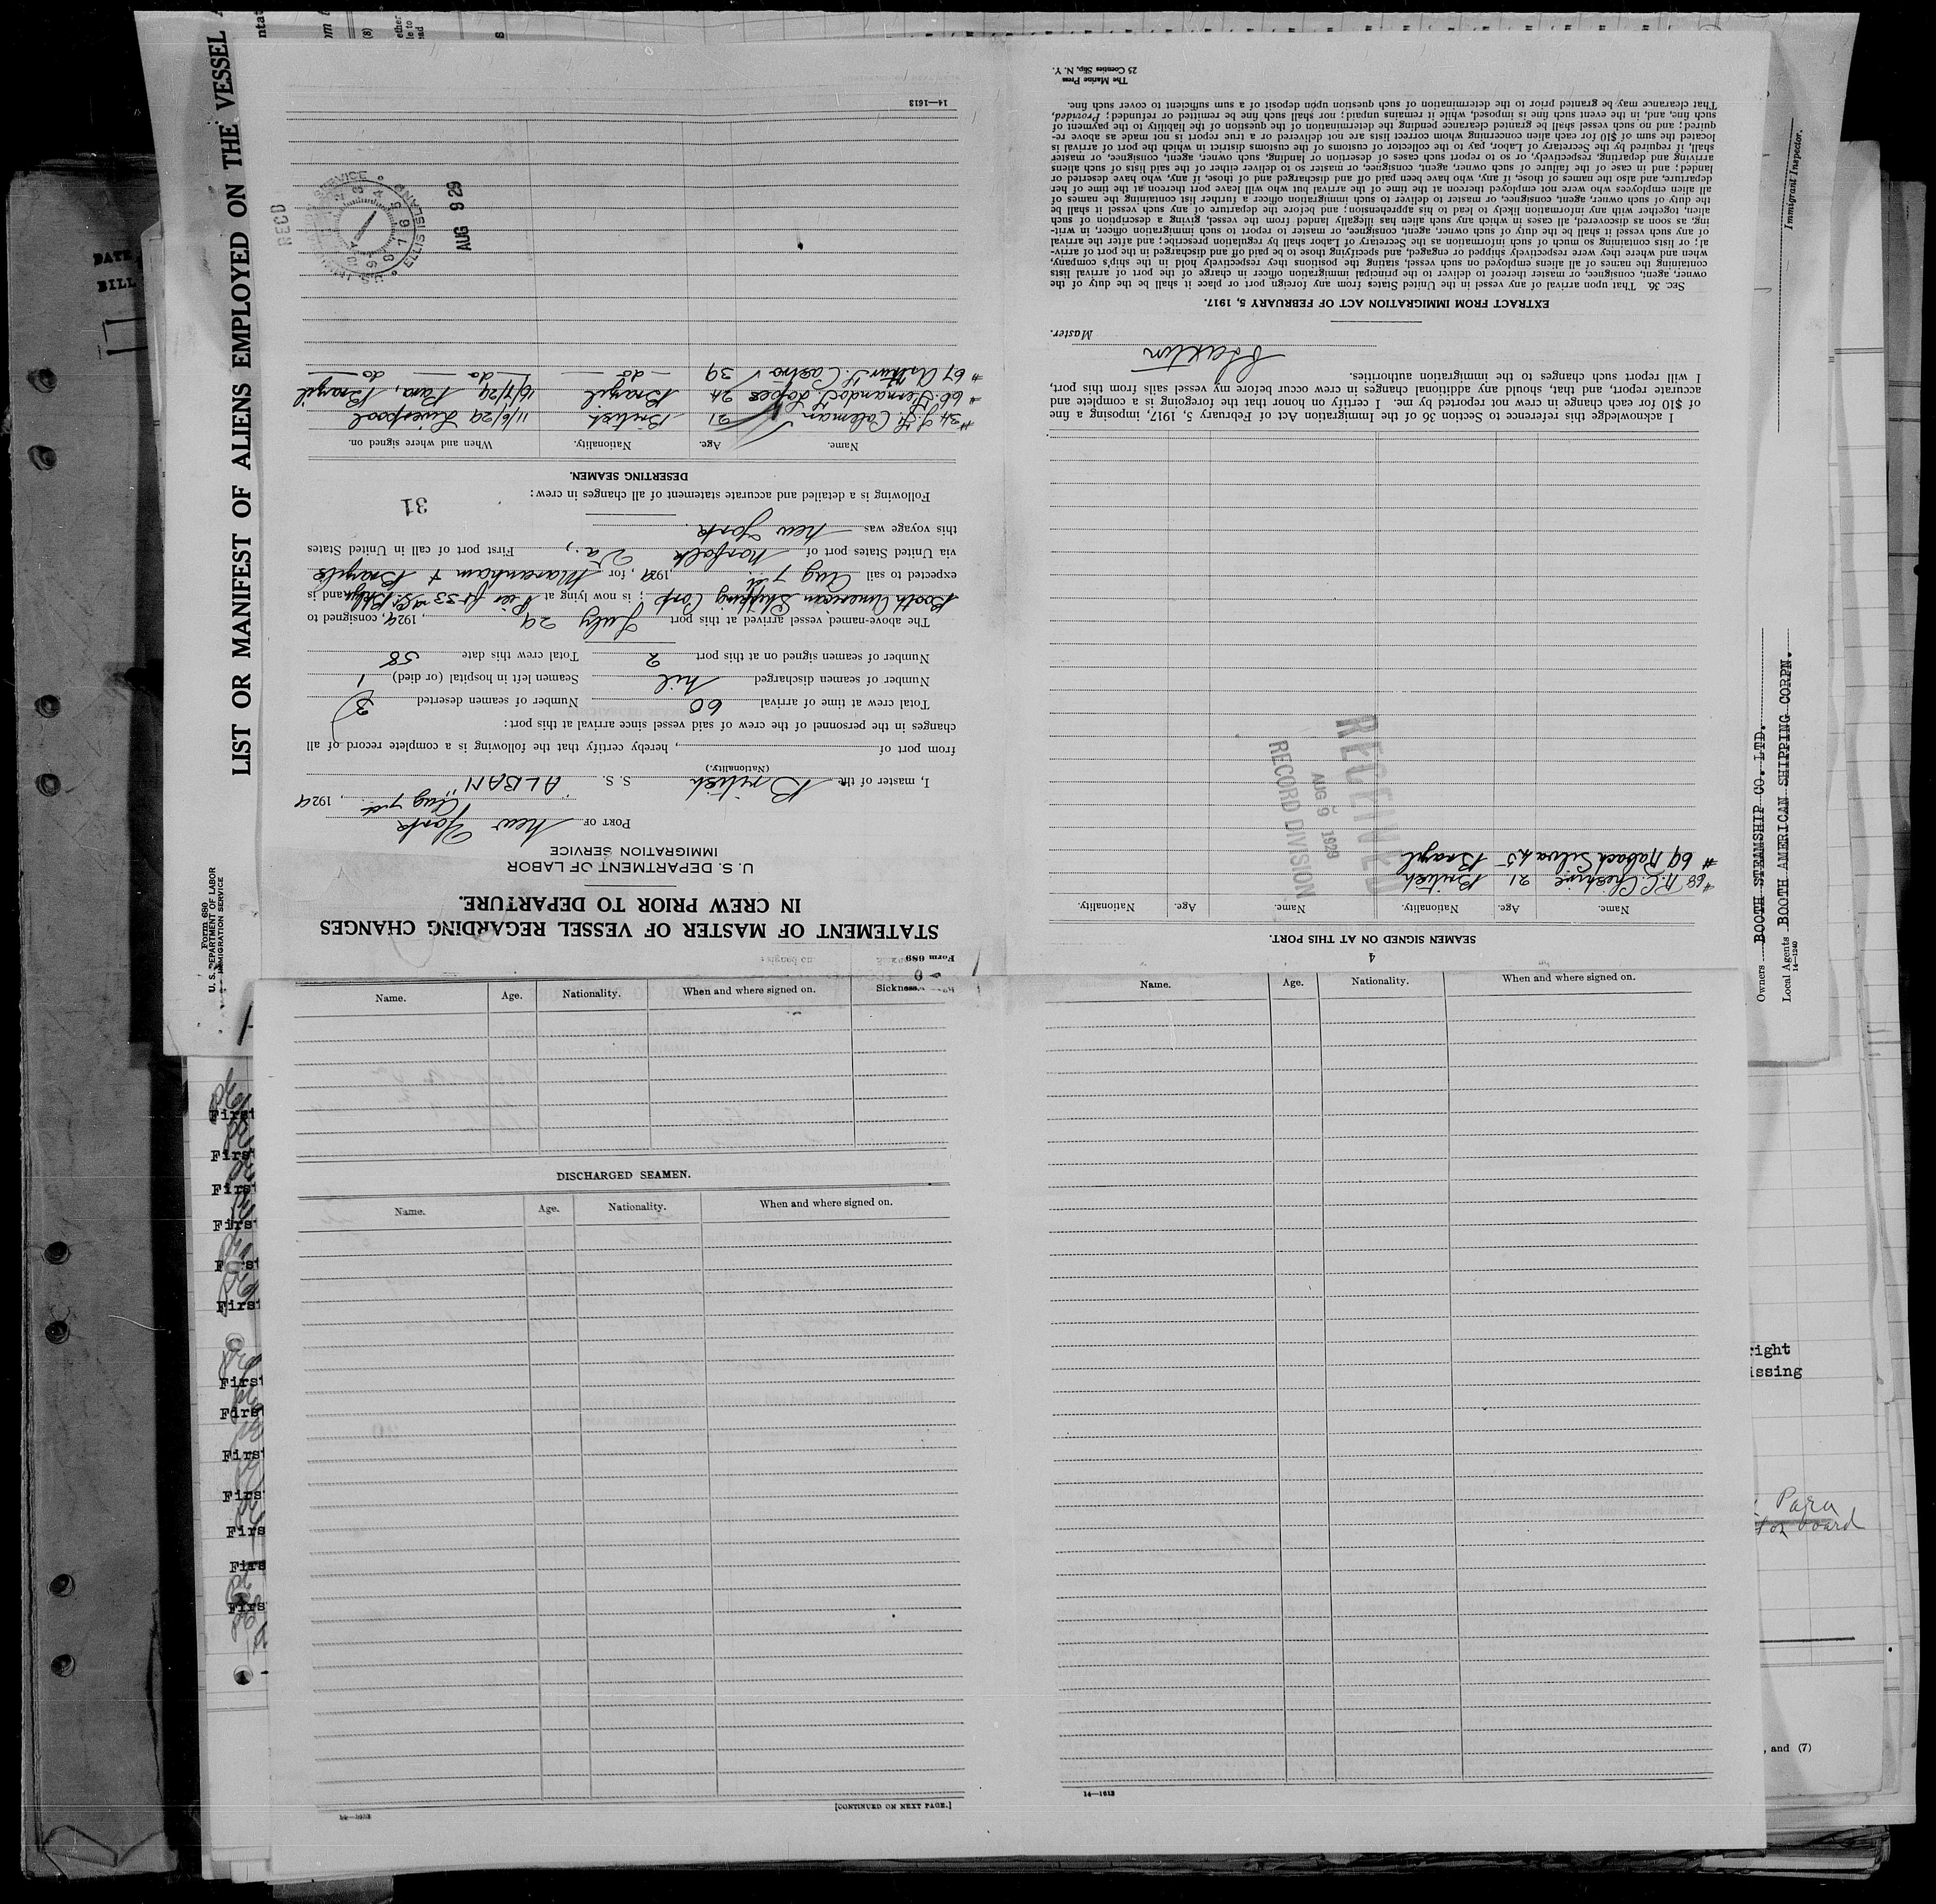 Form 689
STATEMENT OF MASTER OF VESSEL REGARDING CHANGES
IN CREW PRIOR TO DEPARTURE.
U. S. DEPARTMENT OF LABOR
IMMIGRATION SERVICE
PORT OF New York
Aug 7th, 1929
I, master of the British S. S. "ALBAN"
(Nationality.)
from port of , hereby certify that the following is a complete record of all
changes in the personnel of the crew of said vessel since arrival at this port:
Total crew at time of arrival 60 Number of seamen deserted 3
Number of seamen discharged nil Seamen left in hospital (or died) 1
Number of seamen signed on at this port 2 Total crew this date 58
The above-named vessel arrived at this port July 29, 1929, consigned to
Booth American Shipping Corp; is now lying at Pier ft 33rd St. Bklyn and is
expected to sail Aug 7th, 1929, for Maranham + Brazils
via United States port of Norfolk Va., First port of call in United States
this voyage was New York.
31
Following is a detailed and accurate statement of all changes in crew:
DESERTING SEAMEN.
Name. Age. Nationality. When and where signed on.
#34 J. H. Coleman 21 British 11/6/29 Liverpool
#66 Fernando J. Lopes 24 Brazil 16/7/29 Para, Brazil
#67 Arthur F. Castro 39 do do do
AUG 9 29
RECD
U.S. IMMIGRATION SERVICE ELLIS ISLAND
14—1613
The Marine Press
25 Coenties Slip, N. Y.
4
SEAMEN SIGNED ON AT THIS PORT.
Name. Age. Nationality. Name. Age. Nationality.
#68 R. C. Cheshire 21 British
#69 Rabach Silva 45 Brazil
RECEIVED
AUG 9 1929
RECORD DIVISION
I acknowledge this reference to Section 36 of the Immigration Act of February 5, 1917, imposing a fine
of $10 for each change in crew not reported by me. I certify on honor that the foregoing is a complete and
accurate report, and that, should any additional changes in crew occur before my vessel sails from this port,
I will report such changes to the immigration authorities.
Master.
EXTRACT FROM IMMIGRATION ACT OF FEBRUARY 5, 1917.
SEC. 36. That upon arrival of any vessel in the United States from any foreign port or place it shall be the duty of the
owner, agent, consignee, or master thereof to deliver to the principal immigration officer in charge of the port of arrival lists
containing the names of all aliens employed on such vessel, stating the positions they respectively hold in the ship's company,
when and where they were respectively shipped or engaged, and specifying those to be paid off and discharged in the port of arriv-
al; or lists containing so much of such information as the Secretary of Labor shall by regulation prescribe; and after the arrival
of any such vessel it shall be the duty of such owner, agent, consignee, or master to report to such immigration officer, in writ-
ing, as soon as discovered, all cases in which any such alien has illegally landed from the vessel, giving a description of such
alien, together with any information likely to lead to his apprehension; and before the departure of any such vessel it shall be
the duty of such owner, agent, consignee, or master to deliver to such immigration officer a further list containing the names of
all alien employees who were not employed thereon at the time of the arrival but who will leave port thereon at the time of her
departure, and also the names of those, if any, who have been paid off and discharged and of those, if any, who have deserted or
landed; and in case of the failure of such owner, agent, consignee, or master so to deliver either of the said lists of such aliens
arriving and departing, respectively, or so to report such cases of desertion or landing, such owner, agent, consignee, or master
shall, if required by the Secretary of Labor, pay to the collector of customs of the customs district in which the port of arrival is
located the sum of $10 for each alien concerning whom correct lists are not delivered or a true report is not made as above re-
quired; and no such vessel shall be granted clearance pending the determination of the question of the liability to the payment of
such fine, and, in the event such fine is imposed, while it remains unpaid; nor shall such fine be remitted or refunded; Provided,
That clearance may be granted prior to the determination of such question upon deposit of a sum sufficient to cover such fine.
Name. Age. Nationality. When and where signed on. Sickness.
DISCHARGED SEAMEN.
Name. Age. Nationality. When and where signed on.
14—1613
[CONTINUED ON NEXT PAGE.]
Name. Age. Nationality. When and where signed on.
14—1613
LIST OR MANIFEST OF ALIENS EMPLOYED ON THE VESSEL
Form 680
U. S. DEPARTMENT OF LABOR
IMMIGRATION SERVICE
Owners BOOTH STEAMSHIP CO. LTD.
Local Agents BOOTH AMERICAN SHIPPING CORPN.
14—1240
Immigrant Inspector.
DATE
BILL
First
First
First
First
First
First
First
First
First
First
Firs
Firs
Firs
right
issing
Para
for board
, and (7)